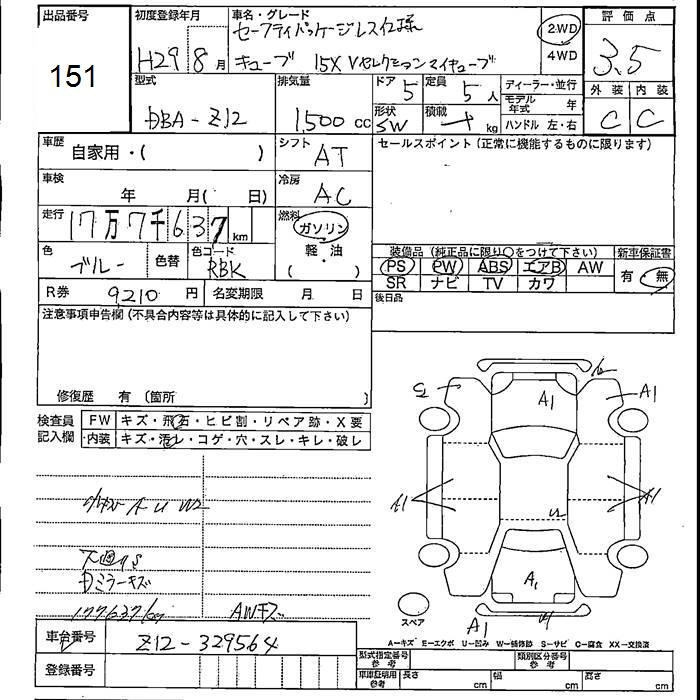 出品番号
151
初度登録年月
H29 8月
車名・グレード
セーフティパッケージレス仕様
キューブ 15X Vセレクション マイキューブ
2WD
4WD
評価点
3.5
外装 内装
C C
型式
DBA-Z12
排気量
1,500 cc
ドア 5
定員 5人
形状 SW
積載 kg
ディーラー・並行
モデル年式 年
ハンドル 左・右
車歴
自家用・( )
シフト
AT
セールスポイント(正常に機能するものに限ります)
車検
年 月( 日)
冷房
AC
走行
17万7千637 km
燃料
ガソリン
軽・油
( )
色
ブルー
色替
色コード
RBK
装備品(純正品に限り〇をつけて下さい)
新車保証書
PS PW ABS エアB AW
SR ナビ TV カワ
有・無
後日品
R券 9210円
名変期限 月 日
注意事項申告欄(不具合内容等は具体的に記入して下さい)
修復歴 有 〔箇所 〕
検査員記入欄
FW キズ・飛石・ヒビ割・リペア跡・X要
内装 キズ・汚レ・コゲ・穴・スレ・キレ・破レ
A U W2
下廻りS
Dミラーキズ
177637kg
AWキズ
A1
A1
A1
A1
A1
A1
スペア
A－キズ E－エクボ U－凹み W－補修跡 S－サビ C－腐食 XX－交換済
車台番号
Z12-329564
登録番号
型式指定番号 参考
類別区分番号 参考
車庫証明用 参考
長さ cm
幅 cm
高さ cm